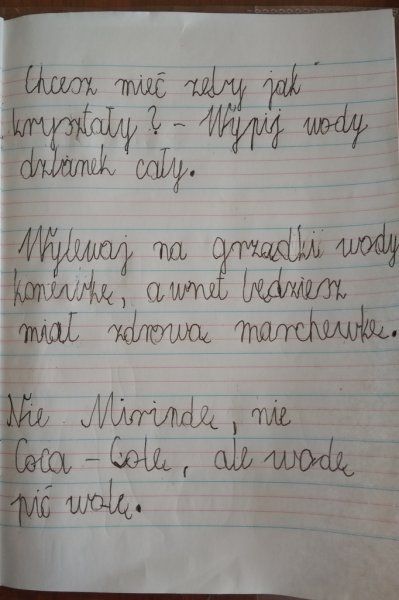 Chcesz mieć zęby jak
kryształy? - Wypij wody
dzbanek cały.
Wylewaj na grządkii wody
konewkę, a wnet będziesz
miał zdrową marchewkę.
Nie Mirindę, nie
Coca - Colę, ale wodę
pić wolę.